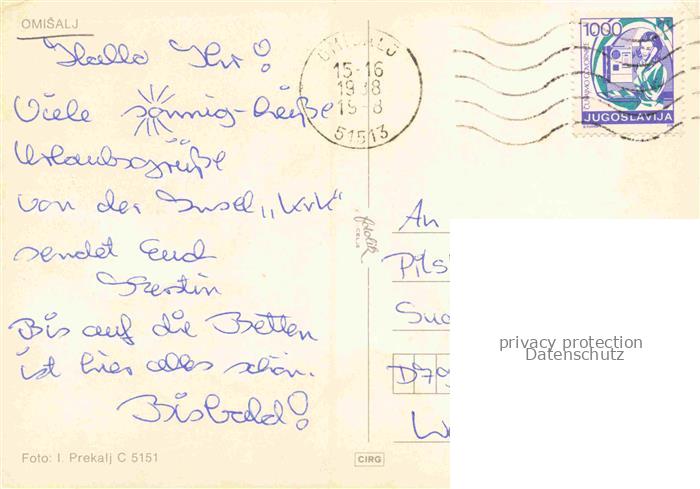 OMIŠALJ
Hallo Ihr!
Viele sonnig-heiße
Urlaubsgrüße
von der Insel „Krk“
sendet Euch
Kerstin
Bis auf die Betten
ist hier alles schön.
Bis bald!
Foto: I. Prekalj C 5151
fotolik
CELJE
CIRG
OMIŠALJ
15-16
1988
19-8
51513
1000
JUGOSLAVIJA
An
Pils
Sud
D79
We
privacy protection
Datenschutz